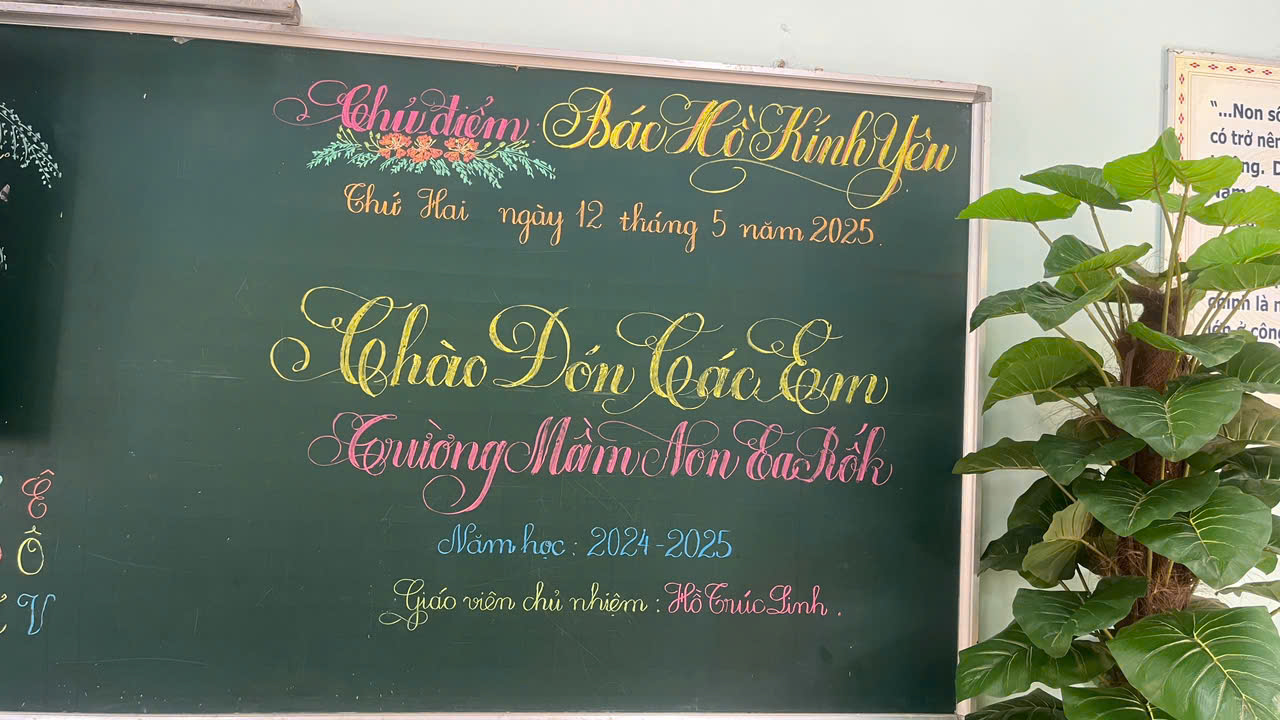 Chủ điểm Bác Hồ Kính Yêu
Thứ Hai ngày 12 tháng 5 năm 2025.
Chào Đón Các Em
Trường Mầm Non Ea Rốk
Năm học: 2024-2025
Giáo viên chủ nhiệm: Hồ Trúc Linh.
Ê
Ô
V
"...Non sô
có trở nên
chính là